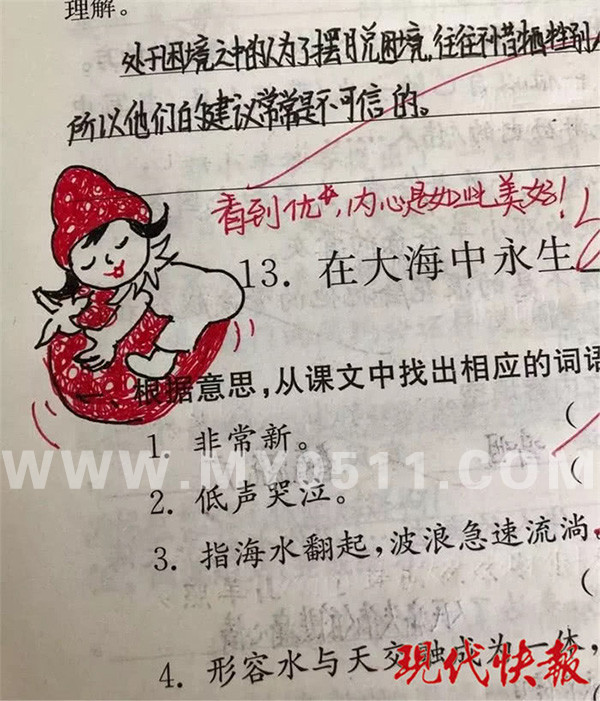 理解。
处于困境之中的人为了摆脱困境,往往不惜牺牲别人
所以他们的建议常常是不可信的。
看到优*,内心是如此美好!
13. 在大海中永生
一、根据意思,从课文中找出相应的词语
(
1. 非常新。
(
WWW.MY0511.COM
2. 低声哭泣。
3. 指海水翻起,波浪急速流淌
(
4. 形容水与天交融成为一体,
(
现代快报